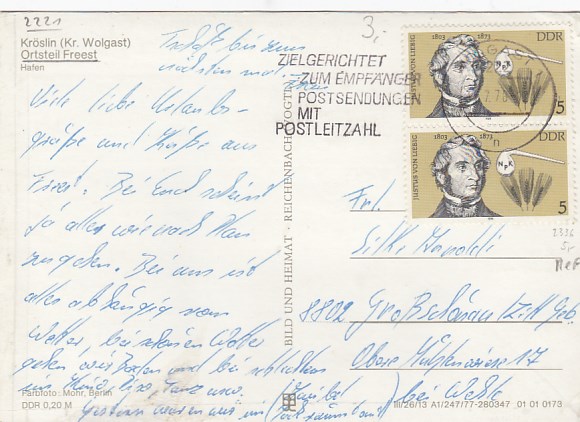 2221
3,-
Kröslin (Kr. Wolgast)
Ortsteil Freest
Hafen
bis zum
nächsten mal
Viele liebe Urlaubs-
grüße und Küße aus
Freest. Bei Euch scheint
ja alles wie nach Plan
zugehen. Bei uns ist
alles abhängig vom
Wetter, bei schönem Wetter
gehen wir Baden und bei schlechten
ins Kino, Tanz usw.
Gestern waren wir im
Farbfoto: Mohr, Berlin
DDR 0,20 M
BILD UND HEIMAT · REICHENBACH (VOGTL)
ZIELGERICHTET
ZUM EMPFÄNGER
POSTSENDUNGEN
MIT
POSTLEITZAHL
1803 1873 DDR
JUSTUS VON LIEBIG
N P K
5
1803 1873 DDR
JUSTUS VON LIEBIG
N P K
5
Frl.
Silke
8802 Großschönau / Zitt. Geb.
Obere Mühlwiese 17
III/26/13 A1/247/77-280347 01 01 0173